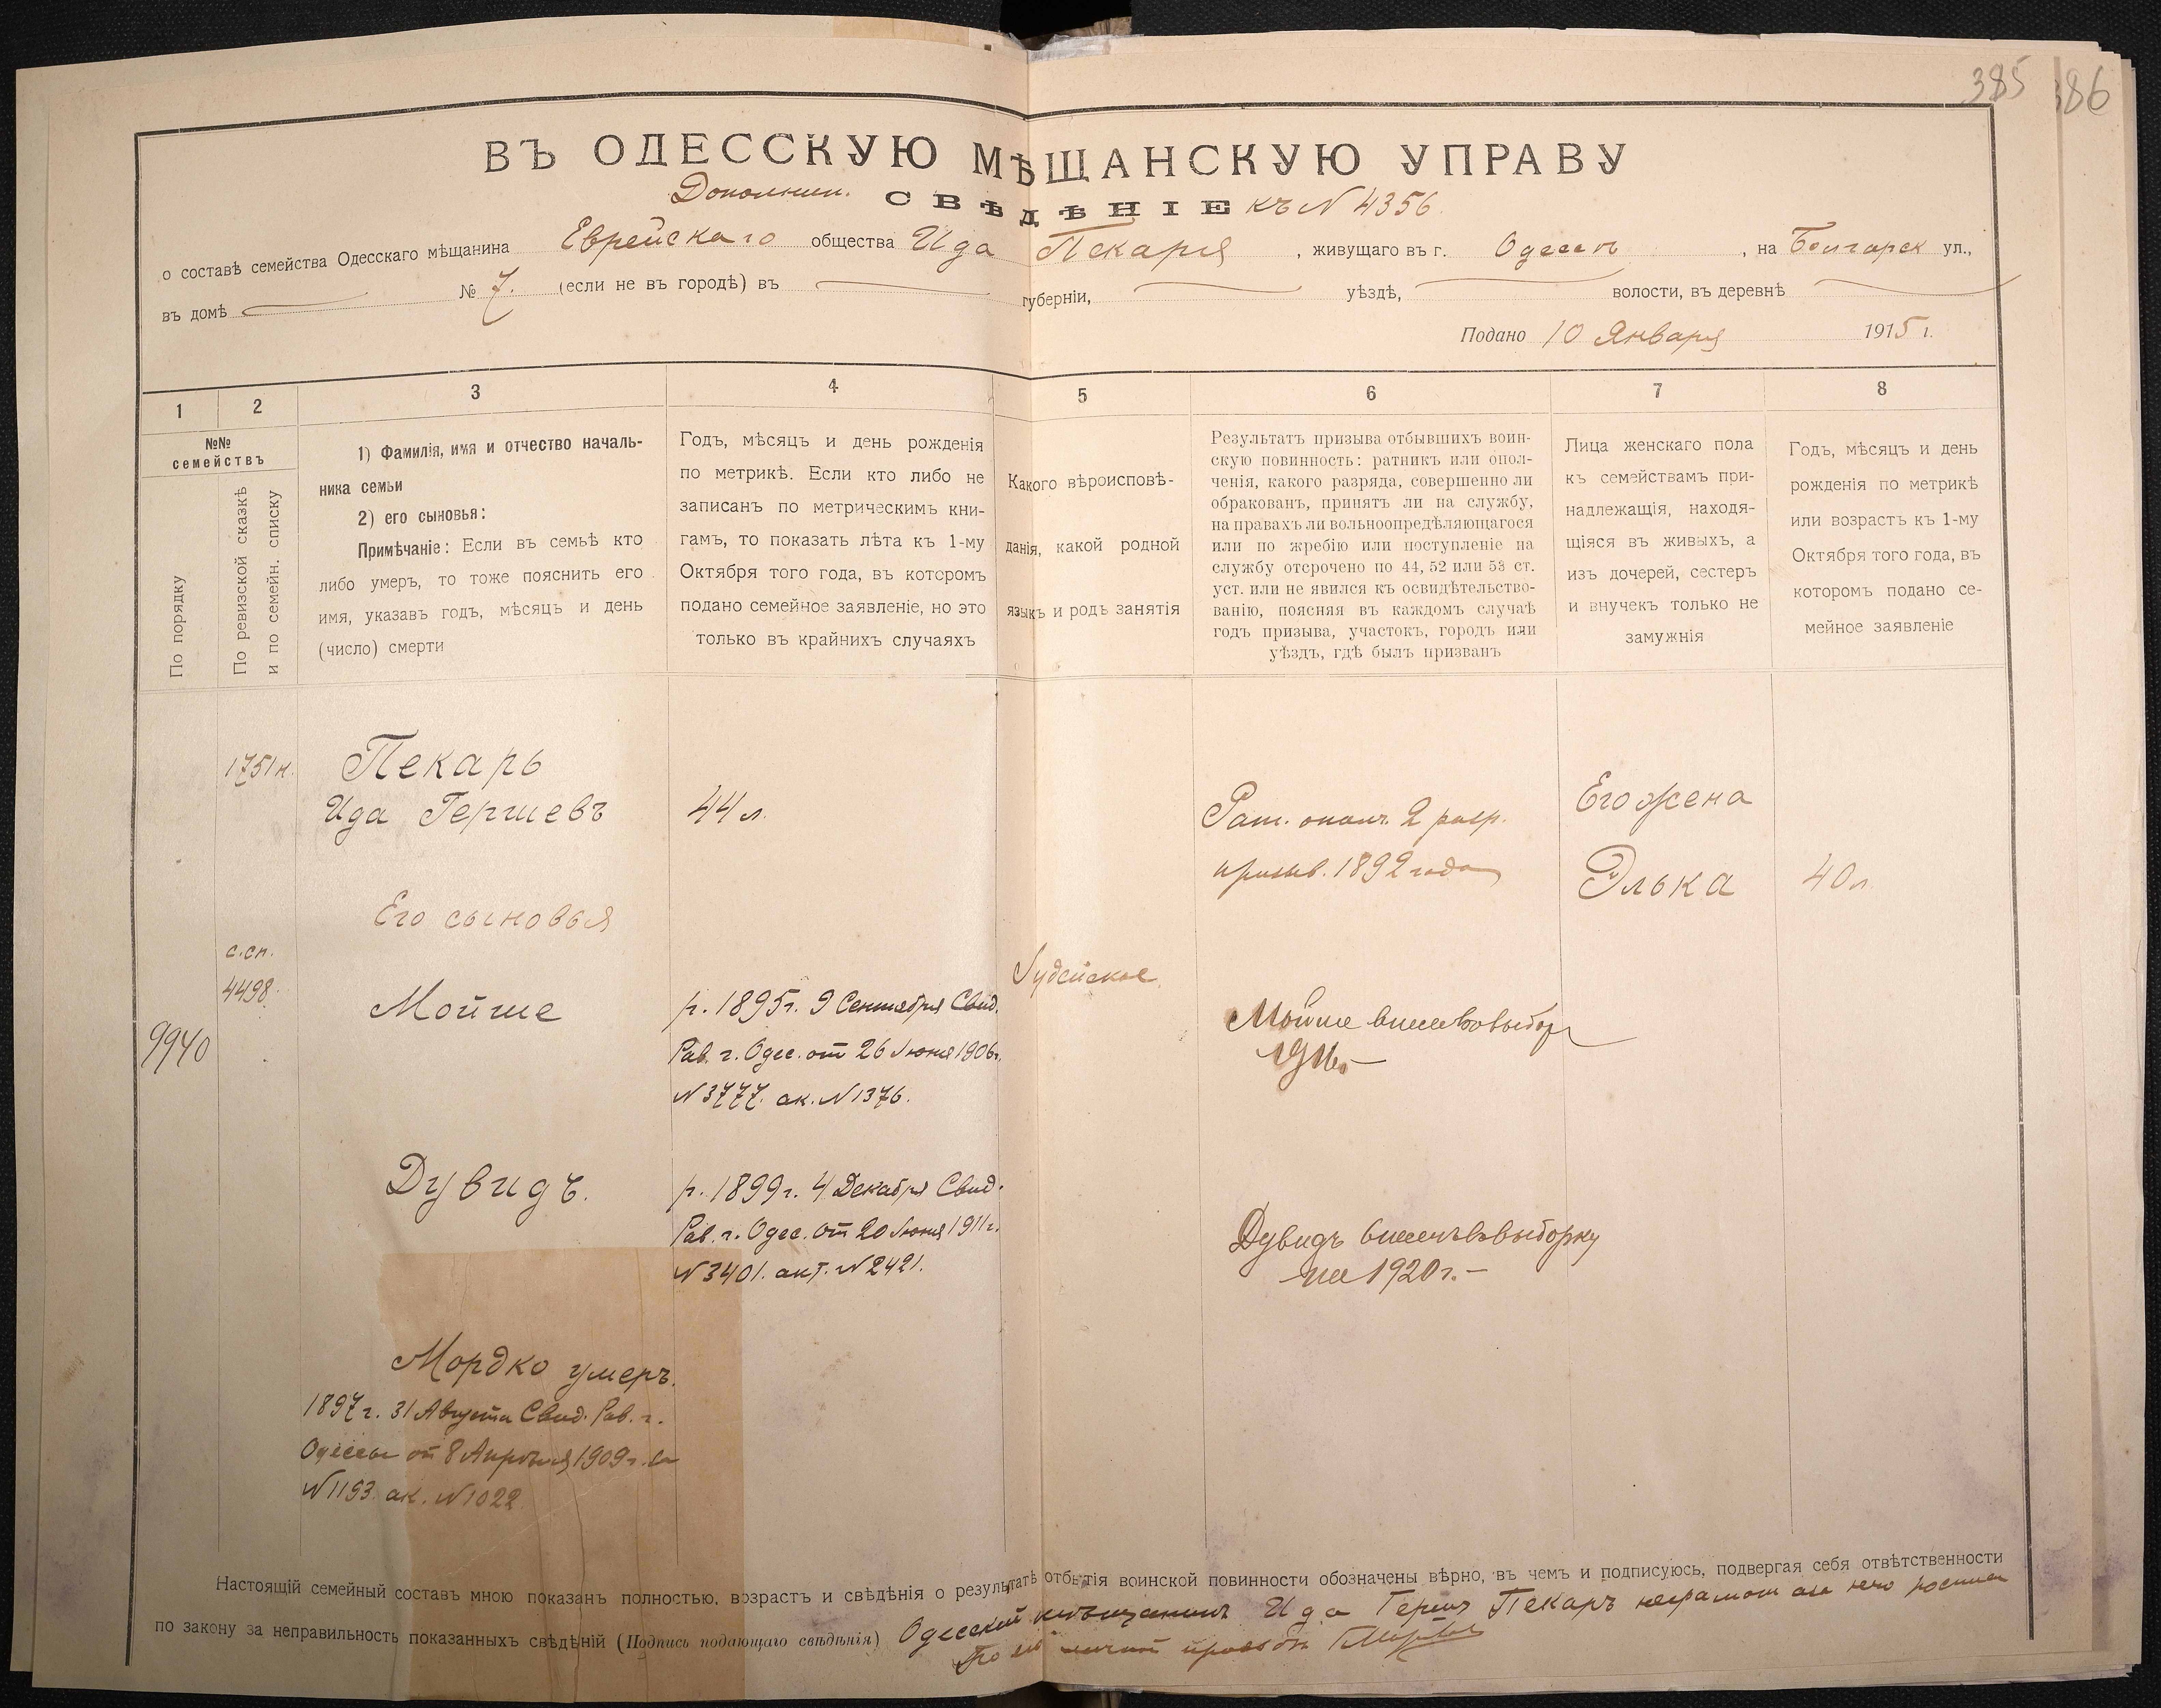 385
386
ВЪ ОДЕССКУЮ МѢЩАНСКУЮ УПРАВУ
Дополнит. СВѢДѢНІЕ къ N 4356
о составѣ семейства Одесскаго мѣщанина Еврейскаго общества Ида Пекаря, живущаго въ г. Одессѣ, на Болгарск ул.,
въ домѣ № 7. (если не въ городѣ) въ губерніи, уѣздѣ, волости, въ деревнѣ
Подано 10 Января 1915 г.
1
2
3
4
5
6
7
8
№№ семействъ
По порядку
По ревизской сказкѣ
и по семейн. списку
1) Фамилія, имя и отчество началь-
ника семьи
2) его сыновья:
Примѣчаніе: Если въ семьѣ кто
либо умеръ, то тоже пояснить его
имя, указавъ годъ, мѣсяцъ и день
(число) смерти
Годъ, мѣсяцъ и день рожденія
по метрикѣ. Если кто либо не
записанъ по метрическимъ кни-
гамъ, то показать лѣта къ 1-му
Октября того года, въ котеромъ
подано семейное заявленіе, но это
только въ крайнихъ случаяхъ
Какого вѣроисповѣ-
данія, какой родной
языкъ и родъ занятія
Результатъ призыва отбывшихъ воин-
скую повинность: ратникъ или опол-
ченія, какого разряда, совершенно ли
обракованъ, принятъ ли на службу,
на правахъ ли вольноопредѣляющагося
или по жребію или поступленіе на
службу отсрочено по 44, 52 или 53 ст.
уст. или не явился къ освидѣтельство-
ванію, поясняя въ каждомъ случаѣ
годъ призыва, участокъ, городъ или
уѣздъ, гдѣ былъ призванъ
Лица женскаго пола
къ семействамъ при-
надлежащія, находя-
щіяся въ живыхъ, а
изъ дочерей, сестеръ
и внучекъ только не
замужнія
Годъ, мѣсяцъ и день
рожденія по метрикѣ
или возрастъ къ 1-му
Октября того года, въ
которомъ подано се-
мейное заявленіе
1751 н.
Пекарь
Ида Гершевъ
44 л.
Рат. ополч. 2 разр.
призыв. 1892 года
Его жена
Элька
40 л
Его сыновья
с.сп.
4498
9940
Мойше
р. 1895 г. 9 Сентября Свид.
Рав. г. Одес. от 26 Іюня 1906 г.
N 3777. ак. N 1376.
Іудейское
Мойше внесенъ въ выбор
1916.–
Дувидъ.
р. 1899 г. 4 Декабря Свид.
Рав. г. Одес. от 20 Іюня 1911 г.
N 3401. акт. N 2421.
Дувидъ внесенъ въ выборку
на 1920 г.–
Мордко умеръ.
1897 г. 31 Августа Свид. Рав. г.
Одессы от 8 Апрѣля 1909 г. за
N 1153. ак. N 1022
Настоящій семейный составъ мною показанъ полностью, возрастъ и свѣдѣнія о результатѣ отбытія воинской повинности обозначены вѣрно, въ чемъ и подписуюсь, подвергая себя отвѣтственности
по закону за неправильность показанныхъ свѣдѣній (Подпись подающаго свѣдѣнія) Одесскій мѣщанинъ Ида Герш Пекаръ неграмот а за него
По его личной просьбѣ